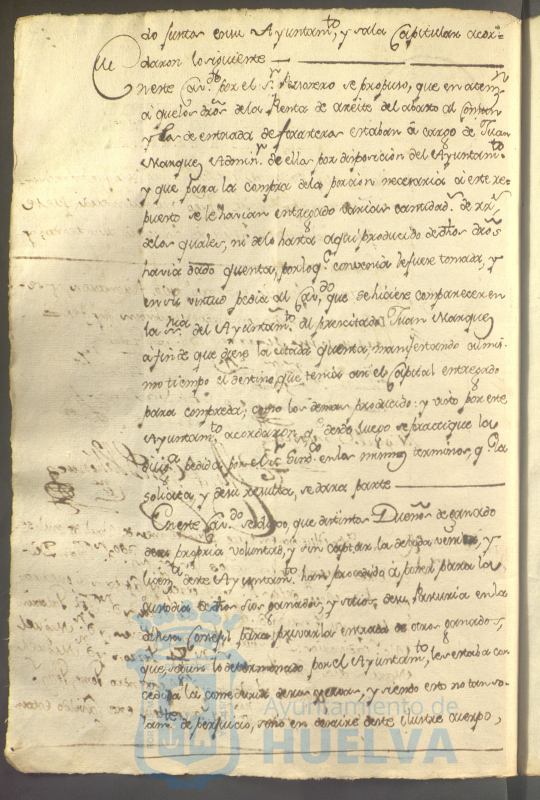 do juntos en su Ayuntamto, y sala Capitular acor-
daron lo siguiente
En este Cavdo por el Sr se propuso, que en atenn
a que los dros de la Renta de azeite del abasto al Comun
y la de entrada de forasteros estaban a cargo de Juan
Marquez Adminr de ella por disposicion del Ayuntamto
y que para la compra de la porcion necesaria a este re-
puesto se le havian entregado varias cantidads de rs
de los quales, ni de lo hasta aqui producido de dhos dros
havia dado quenta, por lo qe convenia le fuese tomada, y
en su virtud pedia al Cavdo que se hiciese comparecer en
la del Ayuntamto al precitado Juan Marquez
a fin de que diese la citada quenta, manifestando al mis-
mo tiempo el destino que tenia asi el Capital entregado
para compreda, como los demas producido: y visto por este
Ayuntamto acordaron qe desde luego se practique la
pedida por el Sr Sindco en los mismos terminos, q la
solicita, y de su resulta, se dara parte
En este Cavdo se dijo, que distintos Dueños de ganado
de su propria voluntad, y sin captar la devida venia, y
licena de este Ayuntamto han procedido a poner para la
custodia de dhos sus ganados, y sitios de su en la
dehesa Consejil, para privar la entrada de otros ganados,
que segun lo determinado por el Ayuntamto, les estaba con-
cedida la comedura de sus yervas, y siendo esto no tan so-
lamte de perjuicio, sino en desaire de este Ilustre cuerpo,
Ayuntamiento de
HUELVA